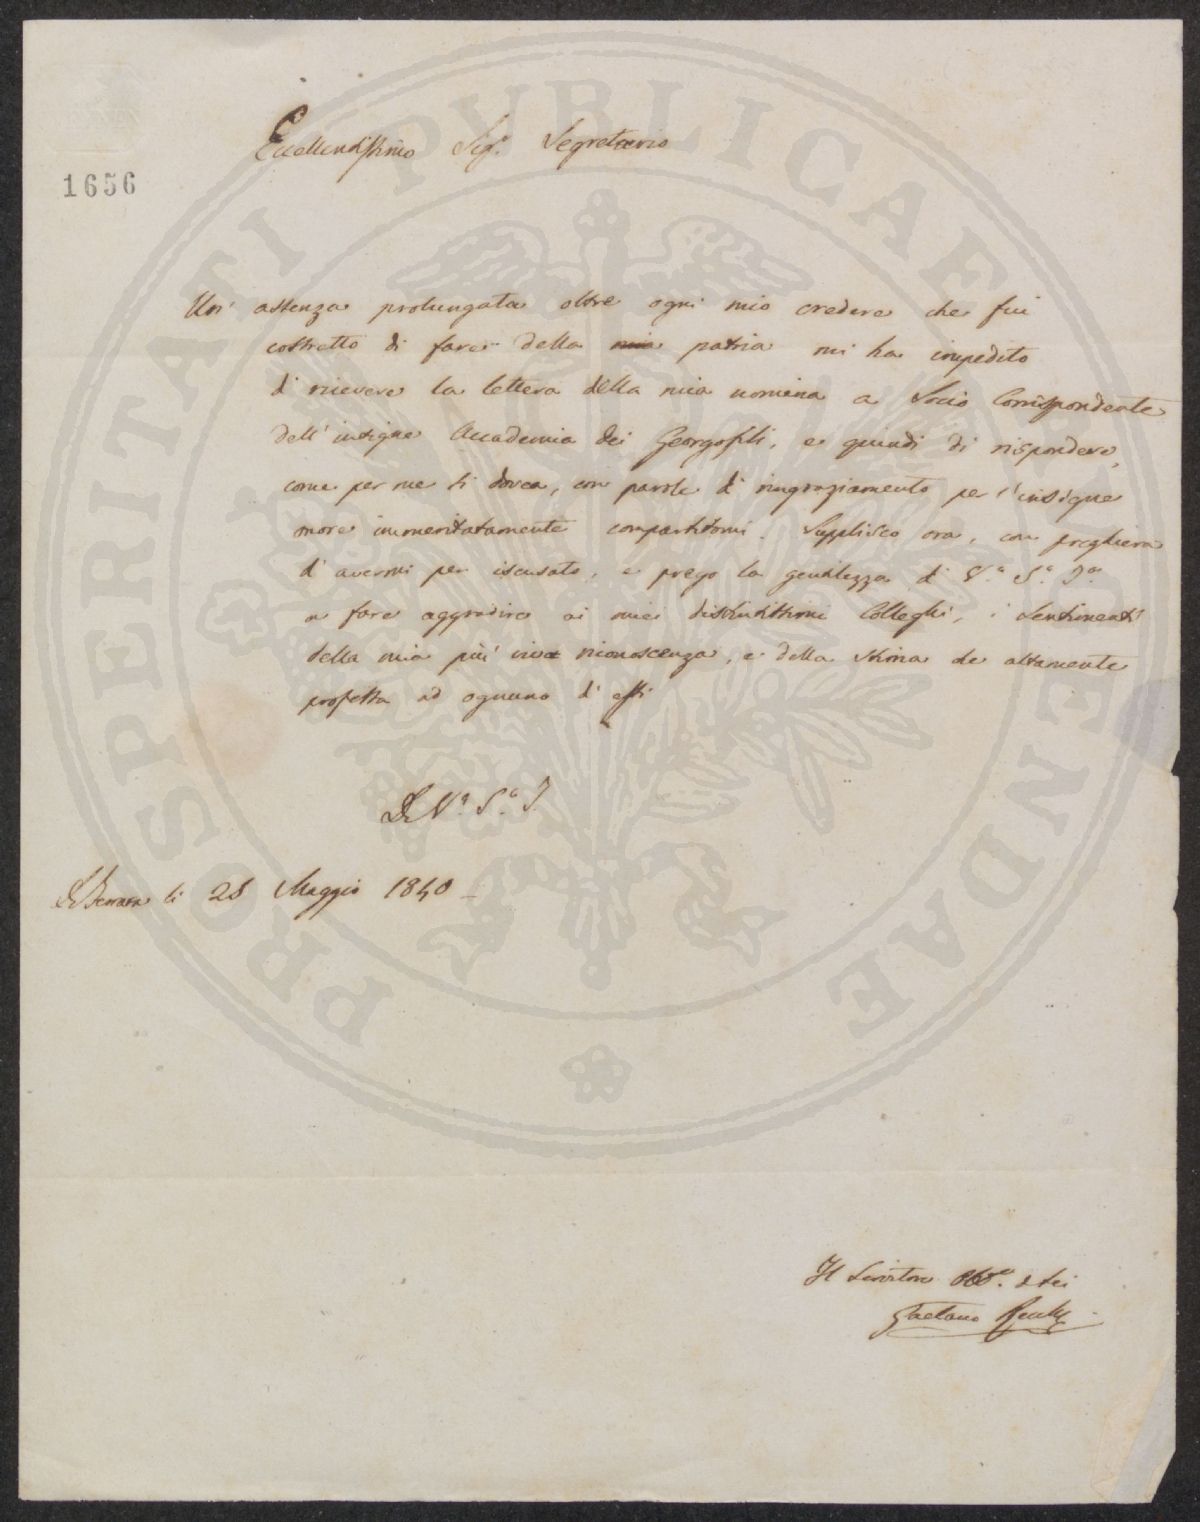 1656
Eccellentissimo Sig.e Segretario
Un' assenza prolungata oltre ogni mio credere che fui
costretto di fare della mia patria mi ha impedito
di ricevere la lettera della mia nomina a Socio Corrispondente
dell' insigne Accademia dei Georgofili, e quindi di rispondere,
come per me si dovea, con parole di ringraziamento per l'insigne
onore immeritatamente compartitomi. Supplisco ora, con preghiera
d' avermi per iscusato, e prego la gentilezza di V.a S.a I.a
a fare aggradire ai miei distintissimi Colleghi, i sentimenti
della mia più viva riconoscenza, e della stima che altamente
professa ad ognuno di essi
Di V.a S.a I.
Di Ferrara li 28 Maggio 1840
Il Servitore Obb.o
Gaetano
PROSPERITATI PVBLICAE AVGENDAE